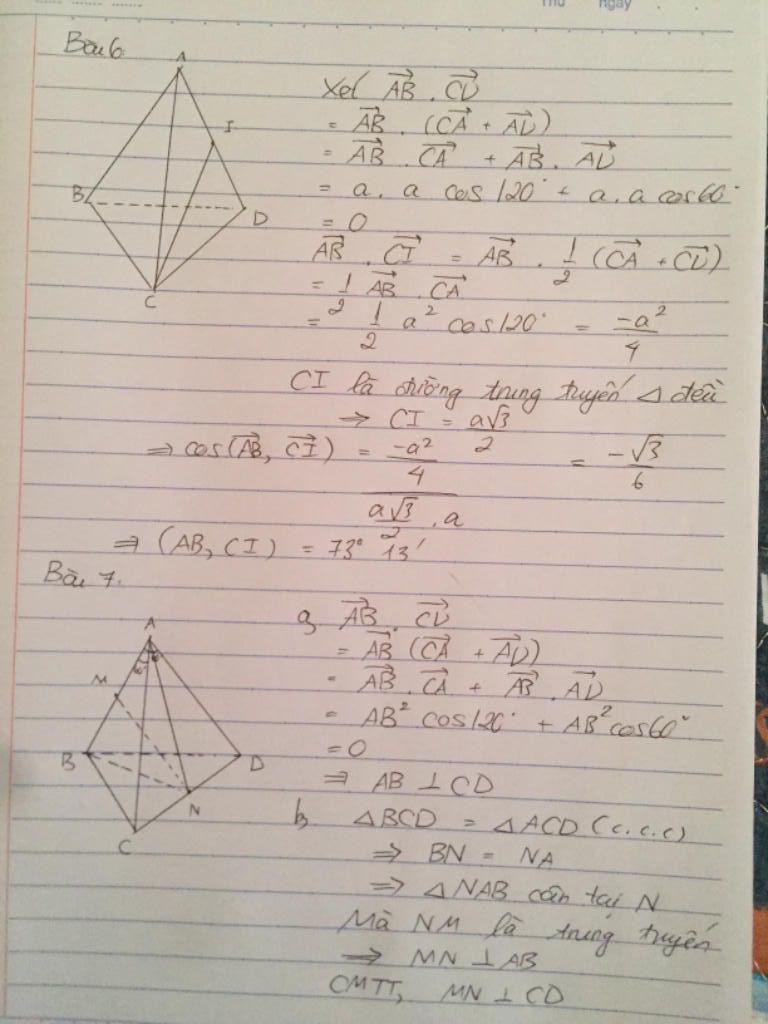 Thứ ngày
Bài 6
A
I
B
D
C
Xét AB⃗ . CD⃗
= AB⃗ . (CA⃗ + AD⃗)
= AB⃗ . CA⃗ + AB⃗ . AD⃗
= a . a cos 120° + a . a cos 60°
= 0
AB⃗ . CI⃗ = AB⃗ . 1/2 (CA⃗ + CD⃗)
= 1/2 AB⃗ . CA⃗
= 1/2 a² cos 120° = -a²/4
CI là đường trung tuyến Δ đều
⇒ CI = a√3/2
⇒ cos(AB⃗, CI⃗) = (-a²/4)/(a√3/2 . a) = -√3/6
⇒ (AB, CI) = 73° 13'
Bài 7.
A
M
B
D
N
C
a, AB⃗ . CD⃗
= AB⃗ (CA⃗ + AD⃗)
= AB⃗ . CA⃗ + AB⃗ . AD⃗
= AB² cos 120° + AB² cos 60°
= 0
⇒ AB ⊥ CD
b, ΔBCD = ΔACD (c.c.c)
⇒ BN = NA
⇒ ΔNAB cân tại N
Mà NM là trung tuyến
⇒ MN ⊥ AB
CMTT, MN ⊥ CD